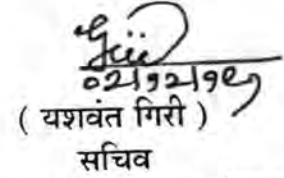 ०२।१२।१९
( यशवंत गिरी )
सचिव